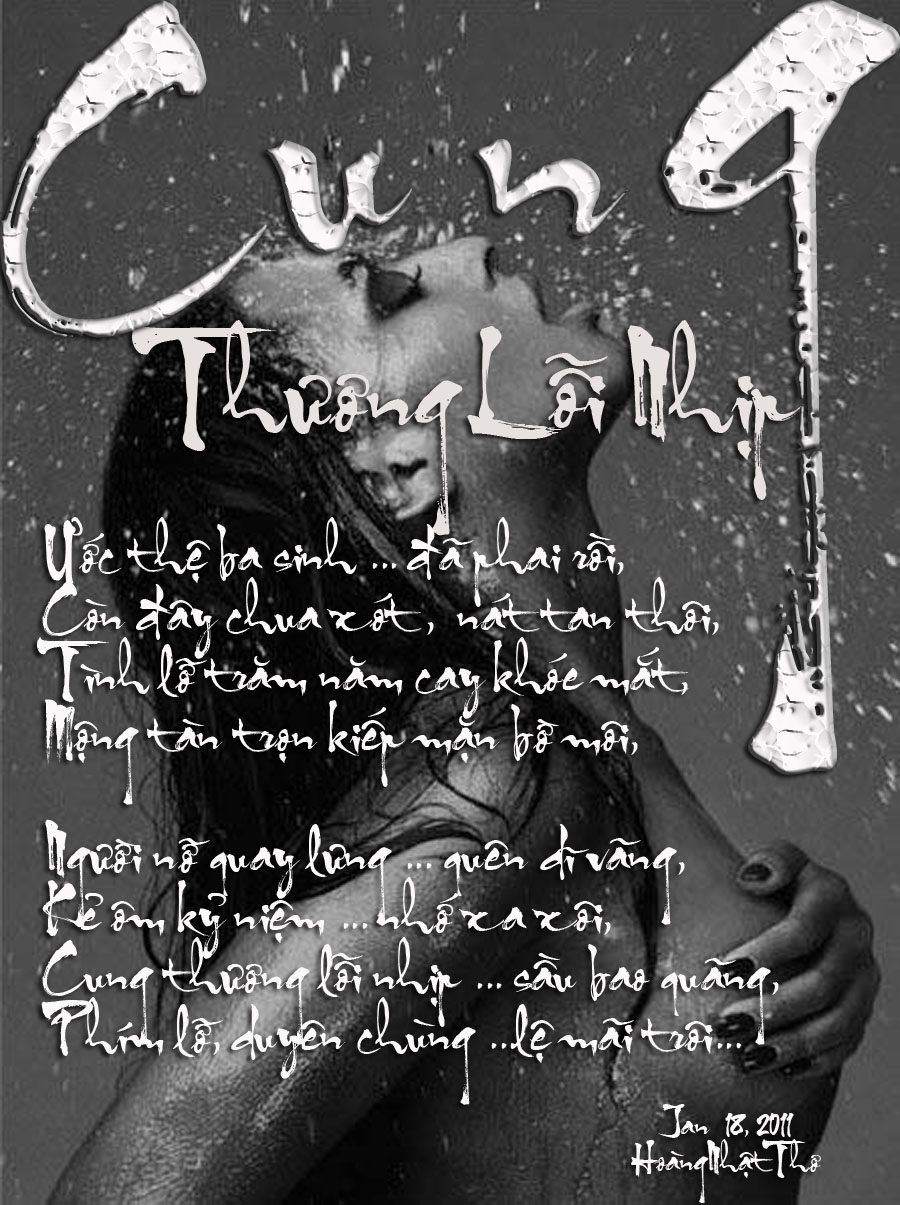 Cung
Thương Lỗi Nhịp
Ước thệ ba sinh ... đã phai rồi,
Còn đây chua xót, nát tan thôi,
Tình lỡ trăm năm cay khóe mắt,
Mộng tàn trọn kiếp mặn bờ môi,
Người nỡ quay lưng ... quên dĩ vãng,
Kẻ ôm kỷ niệm ... nhớ xa xôi,
Cung thương lỗi nhịp ... sầu bao quãng,
Phím lỡ, duyên chùng ...lệ mãi trôi...
Jan 18, 2011
HoàngNhậtThơ